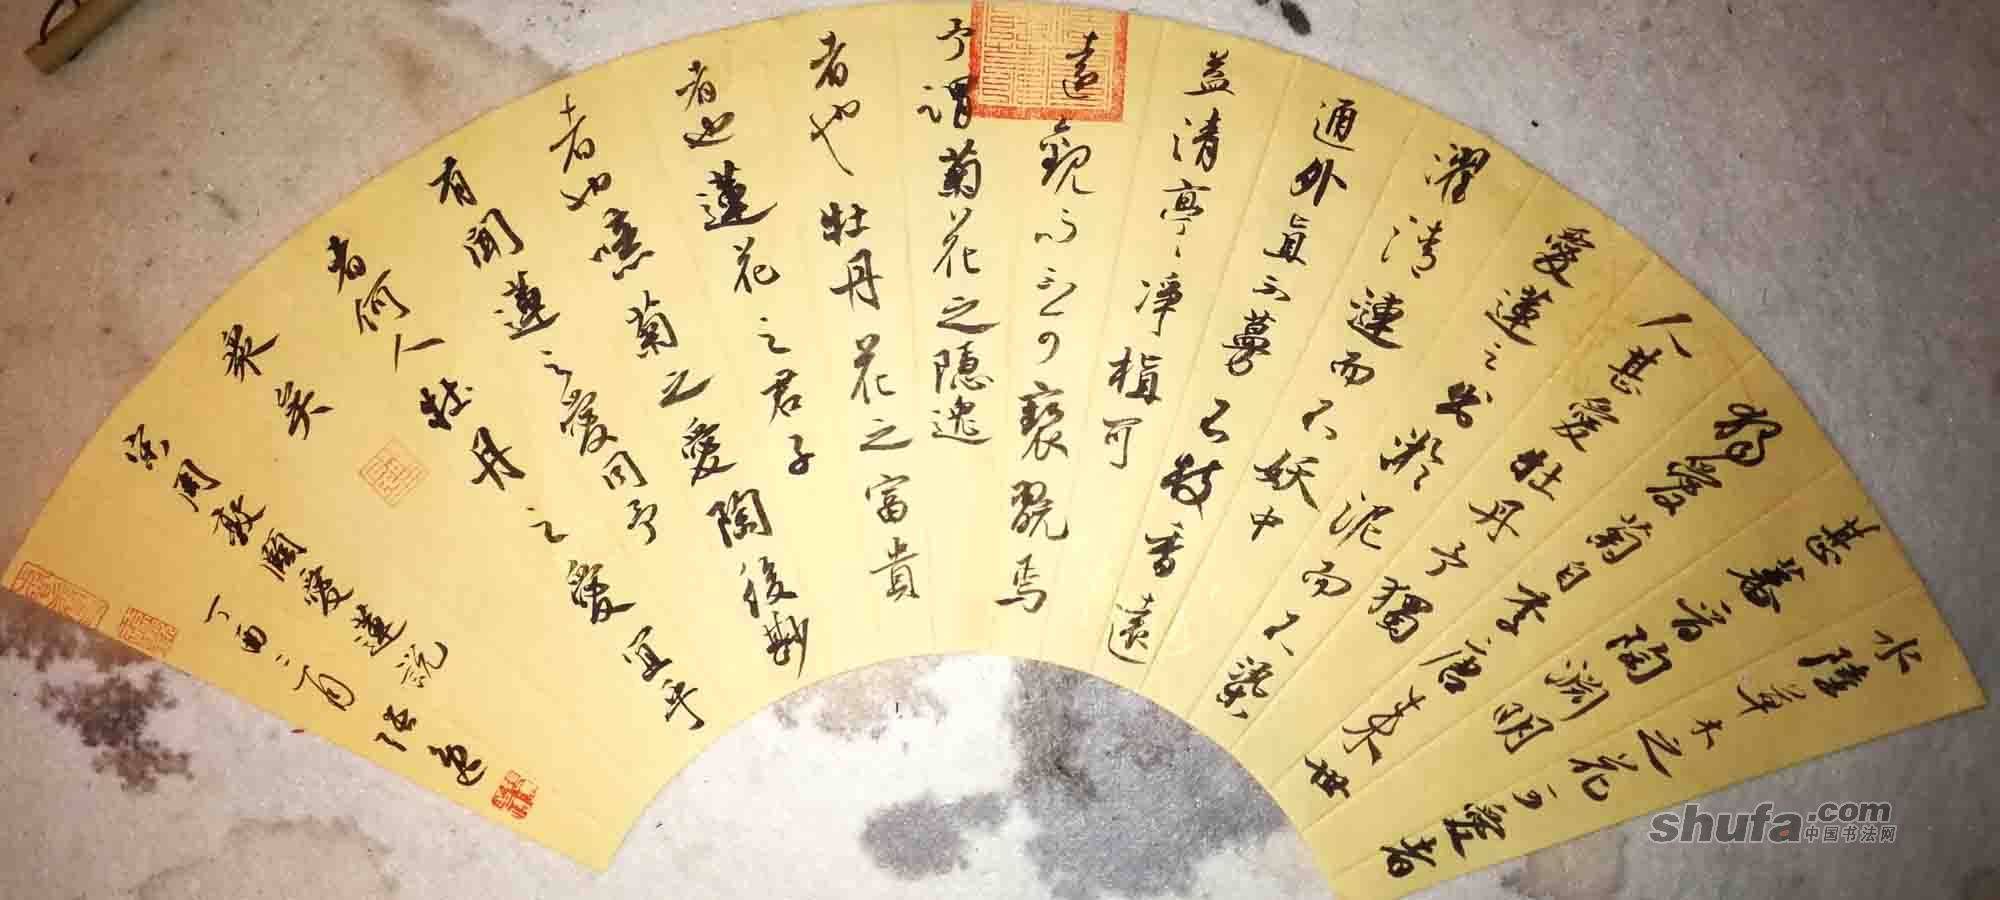 水陸草木之花可愛者
甚蕃晋陶渊明
獨愛菊自李唐来世
人甚愛牡丹予獨
愛蓮之出淤泥而不染
濯清漣而不妖中
通外直不蔓不枝香遠
益清亭亭凈植可
遠觀而不可褻翫焉
予謂菊花之隱逸
者也牡丹花之富貴
者也蓮花之君子
者也噫菊之愛陶後尠
有聞蓮之愛同予
者何人牡丹之愛宜乎
衆矣
宋周敦頤愛蓮説
丁酉二月
shufa.com
中国书法网